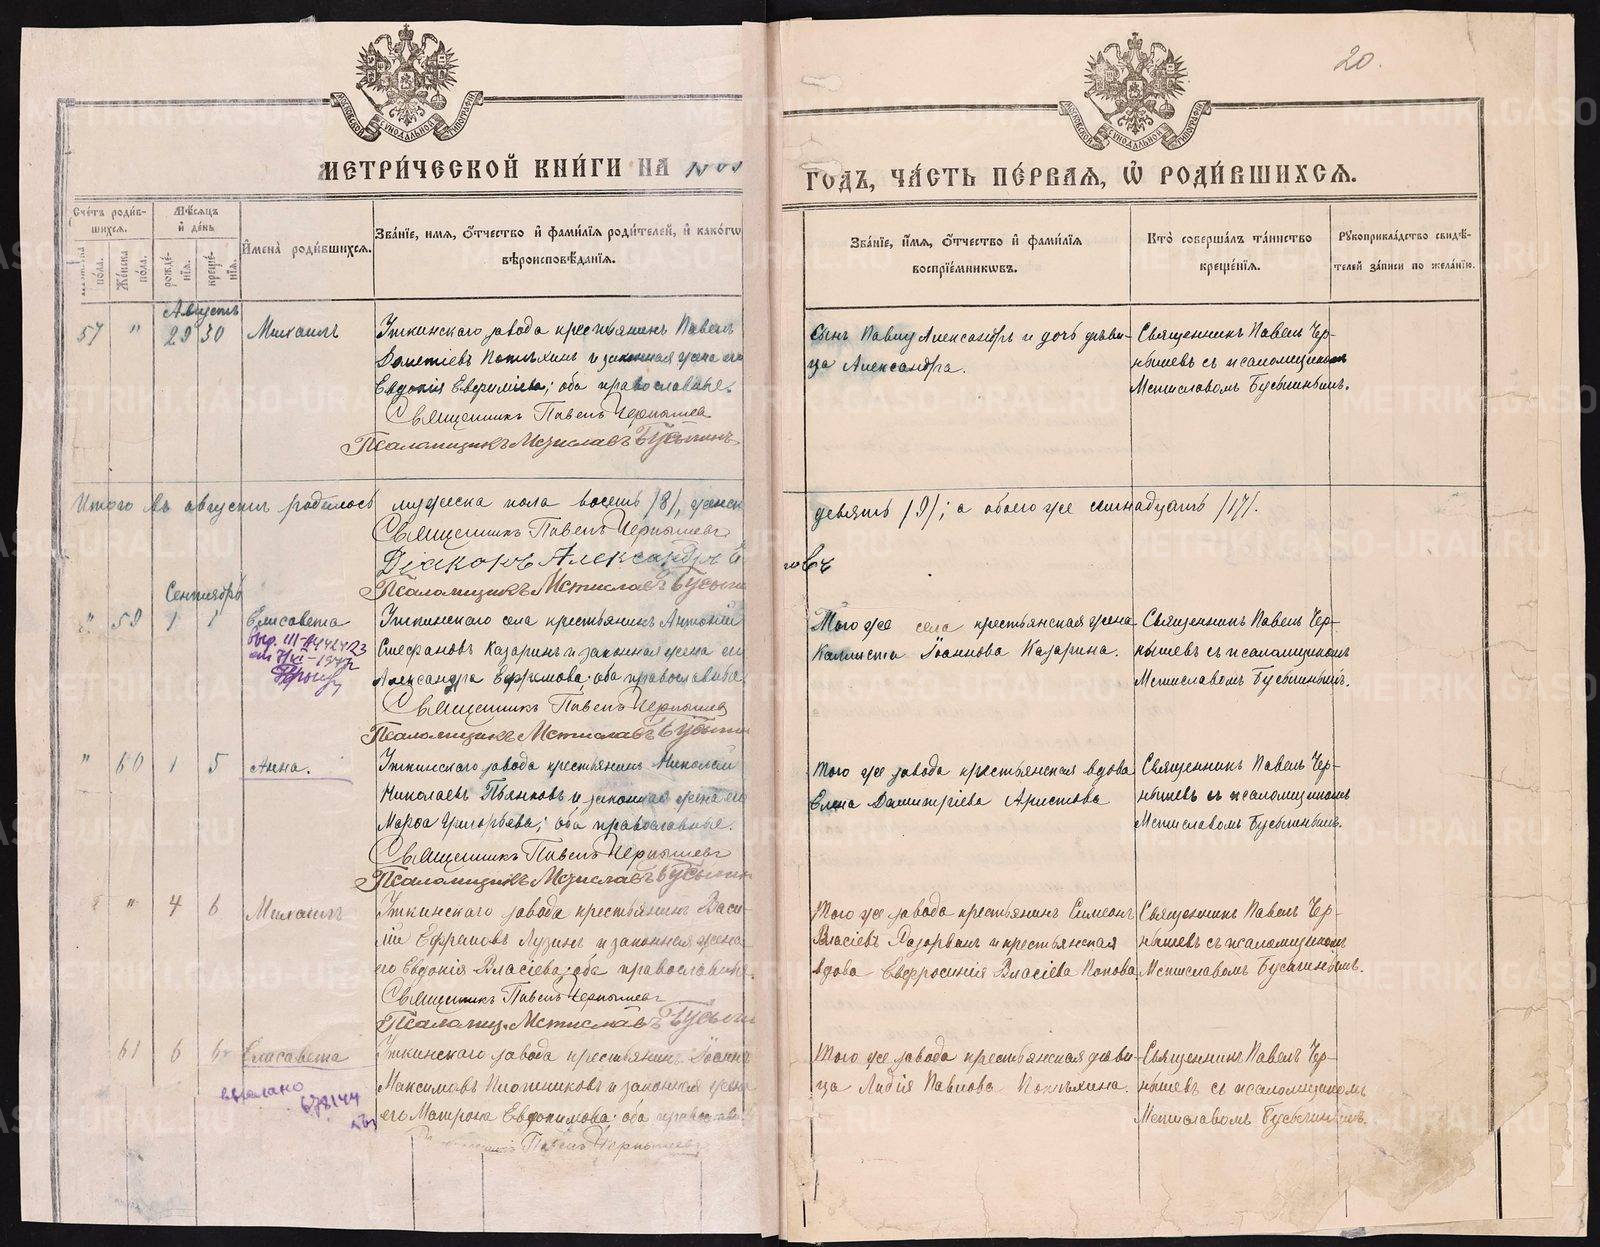 20.
МОСКОВСКОЙ СѴНОДАЛЬНОЙ ТИПОГРАФІИ
МОСКОВСКОЙ СѴНОДАЛЬНОЙ ТИПОГРАФІИ
МЕТРИ́ЧЕСКОЙ КНИ́ГИ НА
ГОДЪ, ЧА́СТЬ ПЕ́РВАЯ, Ѡ РОДИ́ВШИХСЯ.
Сче́тъ роди́в-
шихся.
Мѣ́сяцъ
и де́нь
Имена̀ роди́вшихся.
Зва́нїе, имя, о́тчество и фами́лїя роди́телей, и како́гѡ
вѣроисповѣ́данїя.
по́ла.
Же́нска
по́ла.
рожде́-
нїя.
креще́-
нїя.
Зва́нїе, и́мя, о́тчество и фами́лїя
воспрїе́мникѡвъ.
Кто̀ соверша́лъ та́инство
креще́нїя.
Рꙋкоприкла́дство свидѣ́-
телей за́писи по жела́нїю.
Августъ
57 " 29 30 Михаилъ
Уткинскаго завода крестьянинъ Павелъ
Потѣхинъ и законная жена его
Евдокія Евфиміева; оба православные.
Священникъ Павелъ Чернышевъ
Псаломщикъ Мстиславъ Бусыгинъ
Сынъ Павелъ Александръ и дочь дѣви-
ца Александра.
Священникъ Павелъ Чер-
нышевъ съ псаломщикомъ
Мстиславомъ Бусыгинымъ.
Итого въ августѣ родилось мужеска пола восемь /8/, женск
девять /9/; а обоего же семнадцать /17/.
Священникъ Павелъ Чернышевъ
Діаконъ Александръ
Псаломщикъ Мстиславъ Бусыгин
Сентябрь
" 59 1 1 Елисавета
Уткинскаго села крестьянинъ Антоній
Стефановъ Казаринъ и законная жена его
Александра Ефремова; оба православные
Священникъ Павелъ Чернышевъ
Псаломщикъ Мстиславъ Бусыгин
Того же села крестьянская жена
Каллиста Іоаннова Казарина.
Священникъ Павелъ Чер-
нышевъ съ псаломщикомъ
Мстиславомъ Бусыгинымъ.
" 60 1 5 Анна.
Уткинскаго завода крестьянинъ Николай
Николаевъ Пьянковъ и законная жена его
Марѳа Григорьева; оба православные.
Священникъ Павелъ Чернышевъ
Псаломщикъ Мстиславъ Бусыгин
Того же завода крестьянская вдова
Елена Димитріева Аристова
Священникъ Павелъ Чер-
нышевъ съ псаломщикомъ
Мстиславомъ Бусыгинымъ.
" 4 6 Михаилъ
Уткинскаго завода крестьянинъ Васи-
лій Ефремовъ Лузинъ и законная жена
его Евдокія Власіева; оба православные.
Священникъ Павелъ Чернышевъ
Псаломщ. Мстиславъ Бусыгин
Того же завода крестьянинъ Симеонъ
Власіевъ и крестьянская
вдова Евфросинія Власіева Попова
Священникъ Павелъ Чер-
нышевъ съ псаломщикомъ
Мстиславомъ Бусыгинымъ.
61 6 6 Елисавета
Уткинскаго завода крестьянинъ Іоаннъ
Максимовъ Плотниковъ и законная жена
его Матрона Евдокимова; оба православн
Павелъ Чернышевъ
Того же завода крестьянская дѣви-
ца Лидія Павлова Потѣхина.
Священникъ Павелъ Чер-
нышевъ съ псаломщикомъ
Мстиславомъ Бусыгинымъ.